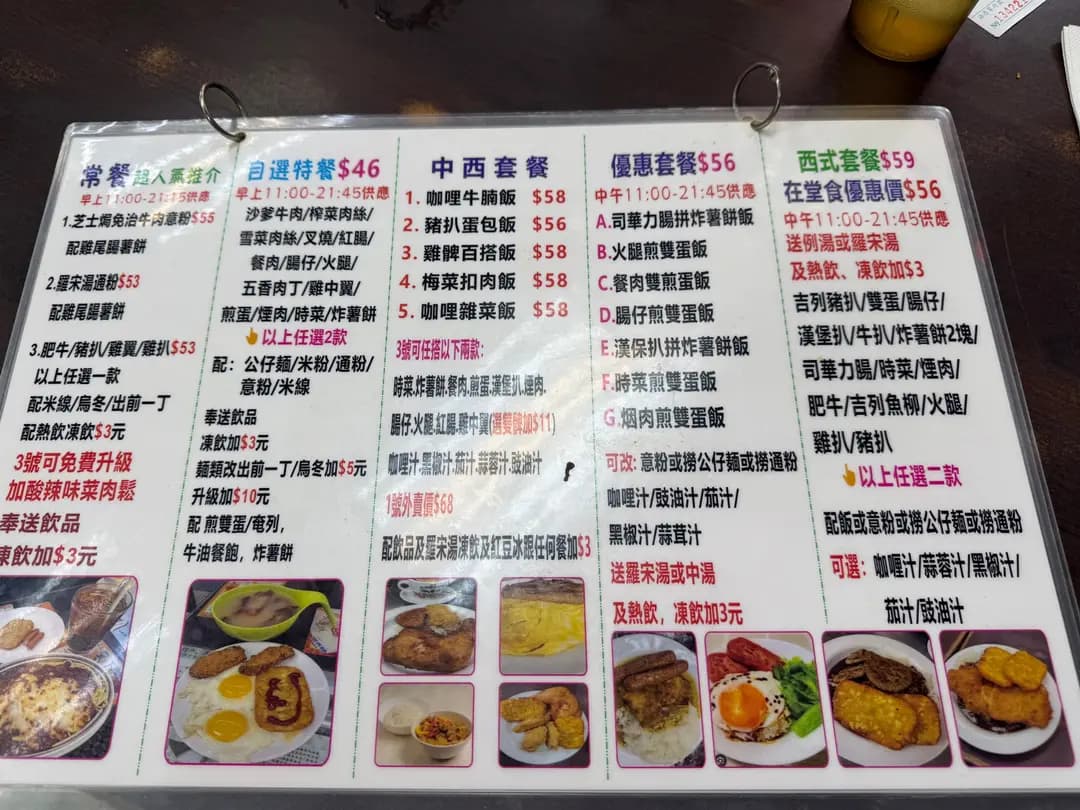 常餐超人氣推介
早上11:00-21:45供應
1.芝士焗免治牛肉意粉$55
配雞尾腸薯餅
2.羅宋湯通粉$53
配雞尾腸薯餅
3.肥牛/豬扒/雞翼/雞扒$53
以上任選一款
配米線/烏冬/出前一丁
配熱飲凍飲$3元
3號可免費升級
加酸辣味菜肉鬆
奉送飲品
凍飲加$3元
自選特餐$46
早上11:00-21:45供應
沙爹牛肉/榨菜肉絲/
雪菜肉絲/叉燒/紅腸/
餐肉/腸仔/火腿/
五香肉丁/雞中翼/
煎蛋/煙肉/時菜/炸薯餅
以上任選2款
配：公仔麵/米粉/通粉/
意粉/米線
奉送飲品
凍飲加$3元
麵類改出前一丁/烏冬加$5元
升級加$10元
配 煎雙蛋/奄列，
牛油餐飽，炸薯餅
中西套餐
1. 咖哩牛腩飯 $58
2. 豬扒蛋包飯 $56
3. 雞髀百搭飯 $58
4. 梅菜扣肉飯 $58
5. 咖哩雜菜飯 $58
3號可任搭以下兩款:
時菜.炸薯餅.餐肉.煎蛋.漢堡扒.煙肉.
腸仔.火腿.紅腸.雞中翼(選雙髀加$11)
咖哩汁.黑椒汁.茄汁.蒜蓉汁.豉油汁
1號外賣價$68
配飲品及羅宋湯凍飲及紅豆冰跟任何餐加$3
優惠套餐$56
中午11:00-21:45供應
A.司華力腸拼炸薯餅飯
B.火腿煎雙蛋飯
C.餐肉雙煎蛋飯
D.腸仔煎雙蛋飯
E.漢保扒拼炸薯餅飯
F.時菜煎雙蛋飯
G.烟肉煎雙蛋飯
可改: 意粉或撈公仔麵或撈通粉
咖哩汁/豉油汁/茄汁/
黑椒汁/蒜茸汁
送羅宋湯或中湯
及熱飲，凍飲加3元
西式套餐$59
在堂食優惠價$56
中午11:00-21:45供應
送例湯或羅宋湯
及熱飲、凍飲加$3
吉列豬扒/雙蛋/腸仔/
漢堡扒/牛扒/炸薯餅2塊/
司華力腸/時菜/煙肉/
肥牛/吉列魚柳/火腿/
雞扒/豬扒
以上任選二款
配飯或意粉或撈公仔麵或撈通粉
可選：咖喱汁/蒜蓉汁/黑椒汁/
茄汁/豉油汁